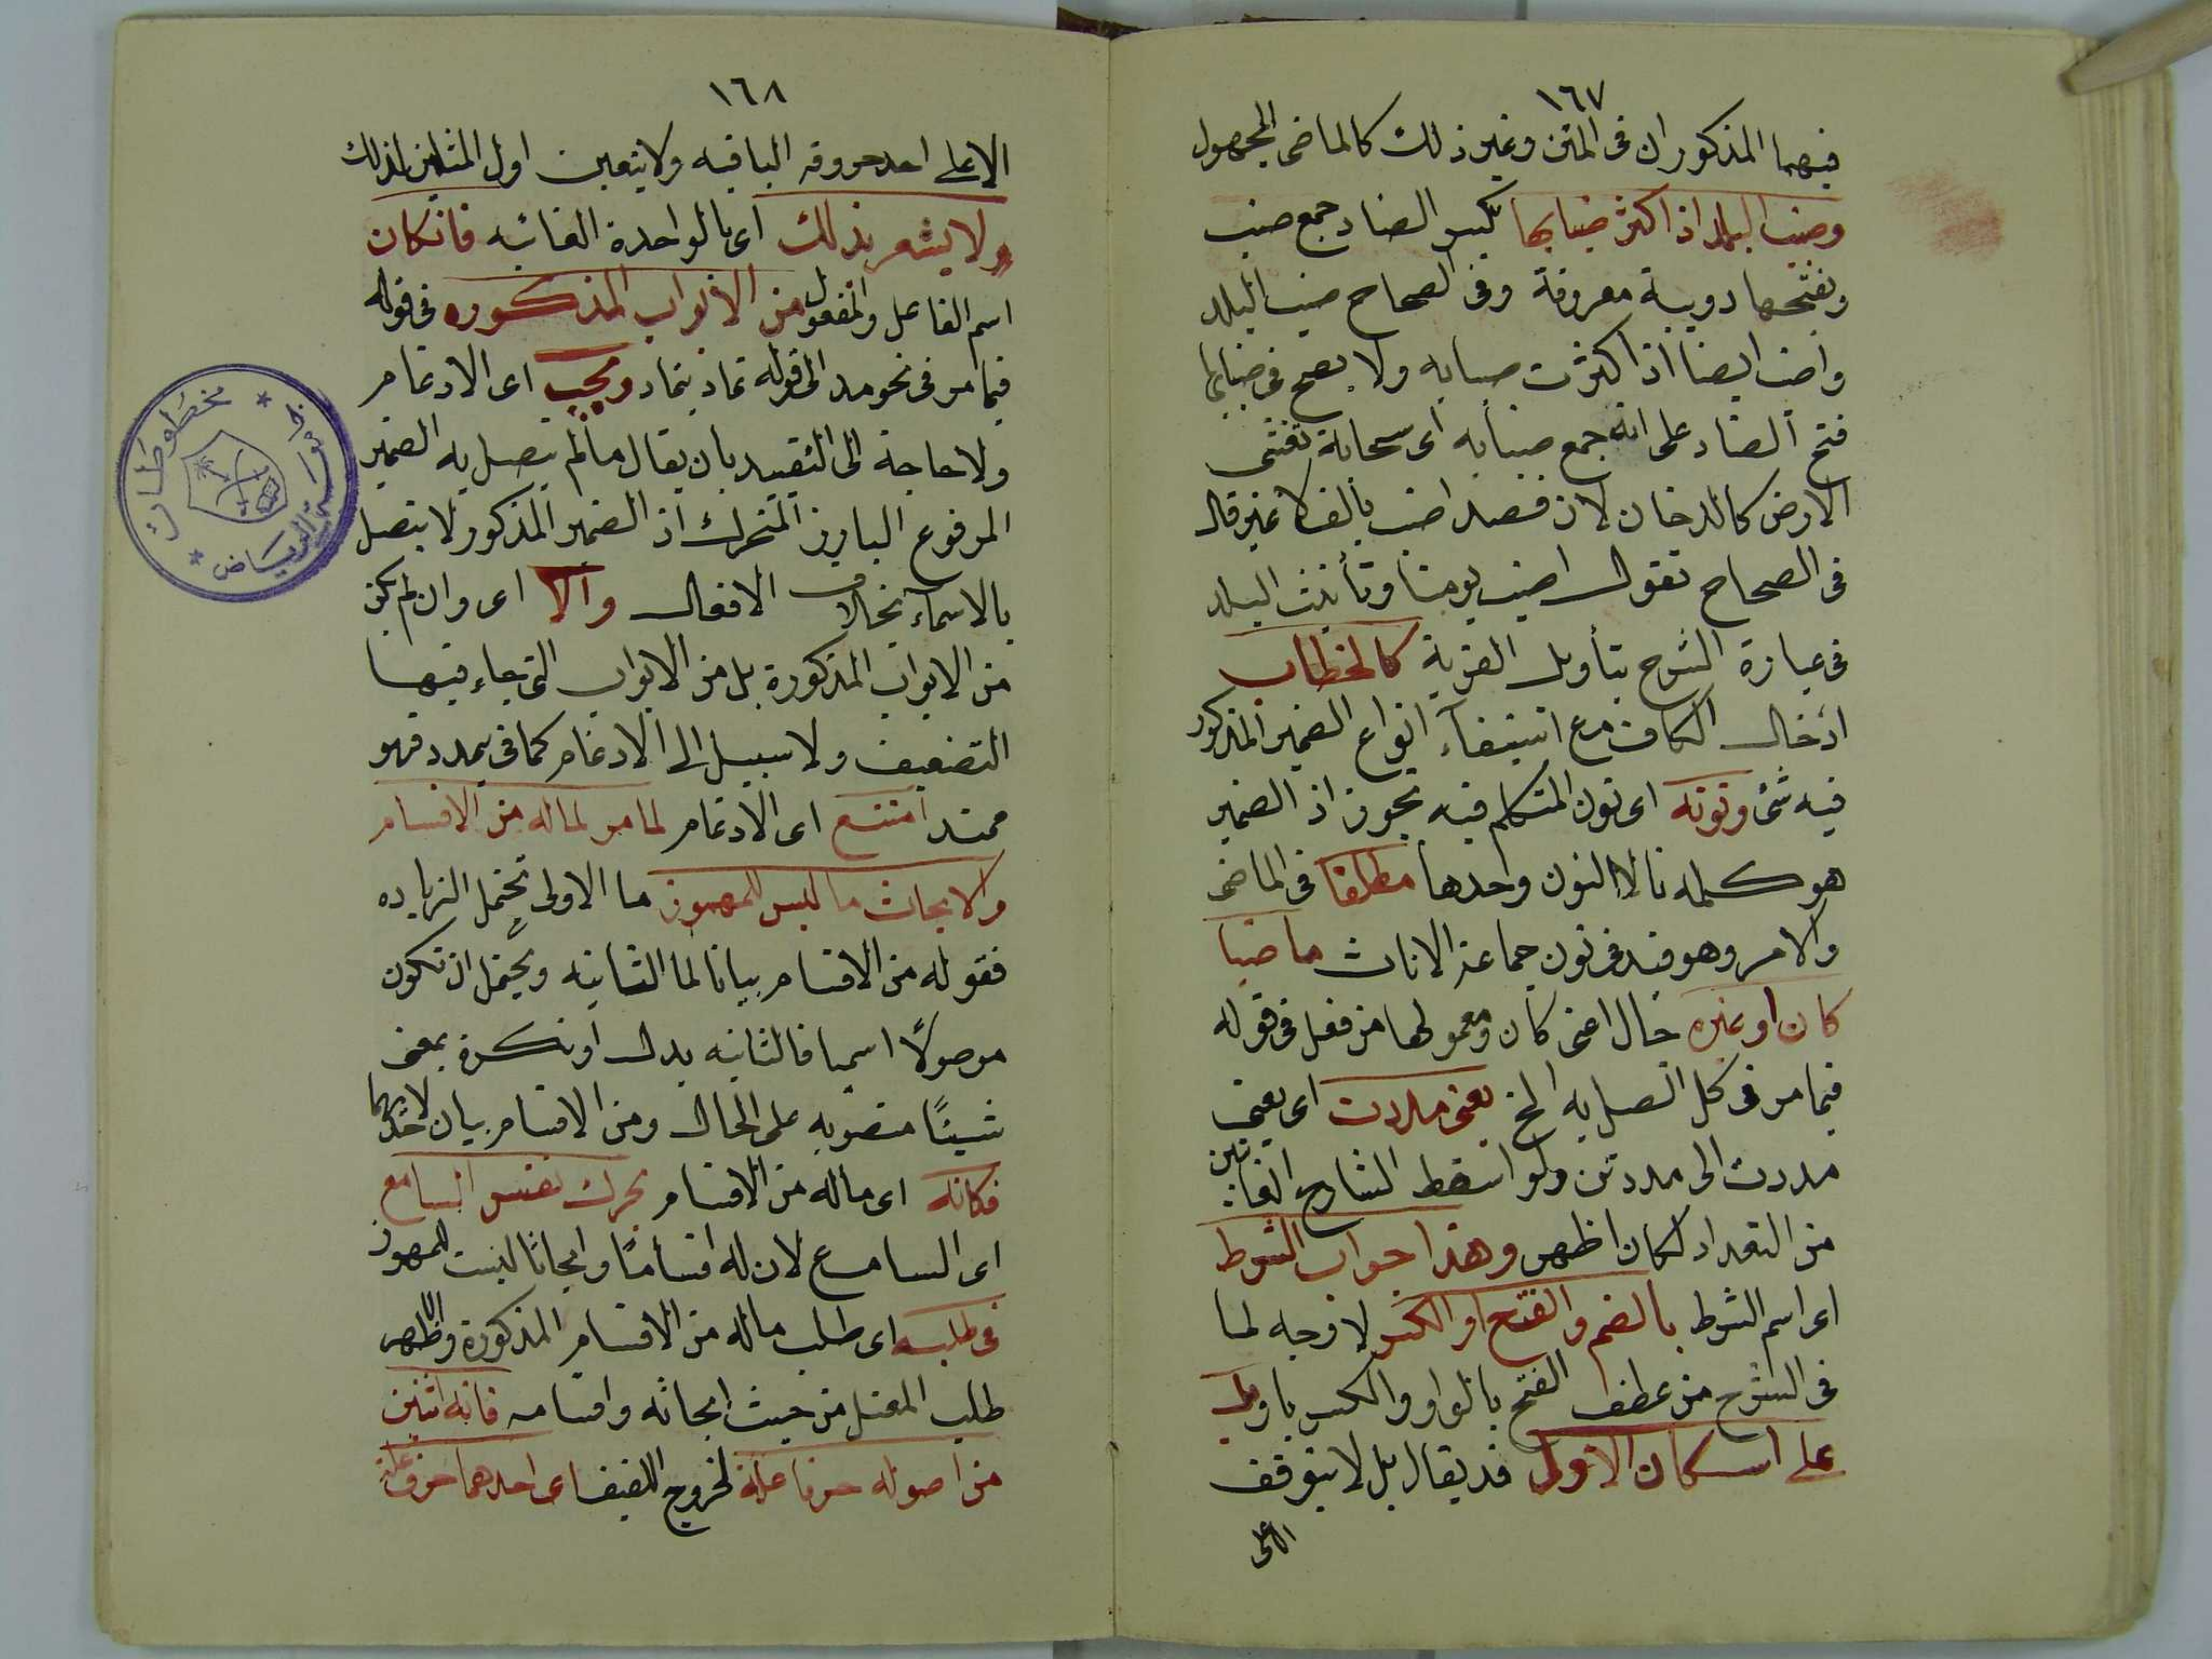 ١٦٧
فيهما المذكوران فى المتن وغير ذلك كالماضى المجهول
وضبب البلد اذا كثر ضبابها بكسر الضاد جمع ضب
وبفتحها دويبة معروفة وفى الصحاح ضبب البلد
واضب ايضا اذا كثرت ضبابه ولا يصح فى ضبابها
فتح الضاد على انه جمع ضبابه اى سحابة تغشى
الارض كالدخان لان فعله اضب بالف لا غير قال
فى الصحاح تقول اضب يومنا وتأنيث البلد
فى عبارة الشرح بتأويل القرية كالخطاب
ادخال الكاف مع استيفاء انواع الضمير المذكور
فيه شئ ونونه اى نون المتكلم فيه تجوز اذ الضمير
هو كلمه نا لا النون وحدها مطلقا فى الماضى
والامر وهو قيد فى نون جماعة الاناث ماضيا
كان او غيره حال اعنى كان ومعمولها من فعل فى قوله
فيما مر فى كل اتصل به الخ يعنى مددت اى يعنى
مددت الى مددتن ولو اسقط الشارح الغائبين
من التعداد لكان اظهر وهذا جواب الشرط
اى اسم الشرط بالضم والفتح او الكسر لا وجه لما
فى الشرح من عطف الفتح بالواو والكسر باو
على اسكان الاول قد يقال بل لا يتوقف
الا على
١٦٨
الا على احد حروفه الباقيه ولا يتعين اول المثلين لذلك
ولا يشعر بذلك اى بالواحدة الغائبه فان كان
اسم الفاعل والمفعول من الابواب المذكوره فى قوله
فيما مر فى نحو مد الى قوله تماد يتماد ويجب اى الادغام
ولا حاجة الى التقييد بان يقال ما لم يتصل به الضمير
المرفوع البارز المتحرك اذ الضمير المذكور لا يتصل
بالاسماء بخلاف الافعال والا اى وان لم يكن
من الابواب المذكورة بل من الابواب التى جاء فيها
التضعيف ولا سبيل الى الادغام كما فى يمدد فهو
ممدد امتنع اى الادغام لما مر لما له من الاقسام
والابحاث ما ليس للمهموز ما الاولى تحتمل الزياده
فقوله من الاقسام بيانا لما الثانيه ويحتمل ان تكون
موصولاً اسميا فالثانيه بدل او نكرة بمعنى
شيئًا منصوبه على الحال ومن الاقسام بيان لاحدهما
فكانه اى ما له من الاقسام يحرك نفس السامع
اى السامع لان له اقسامًا وابحاثًا ليست للمهموز
فى طلبه اى طلب ما له من الاقسام المذكورة والاظهر
طلب المعتل من حيث ابحاثه واقسامه فانه اثنين
من اصوله حرفا علة لخروج اللفيف اى احدهما حرف علة
مخطوطات
الرياض